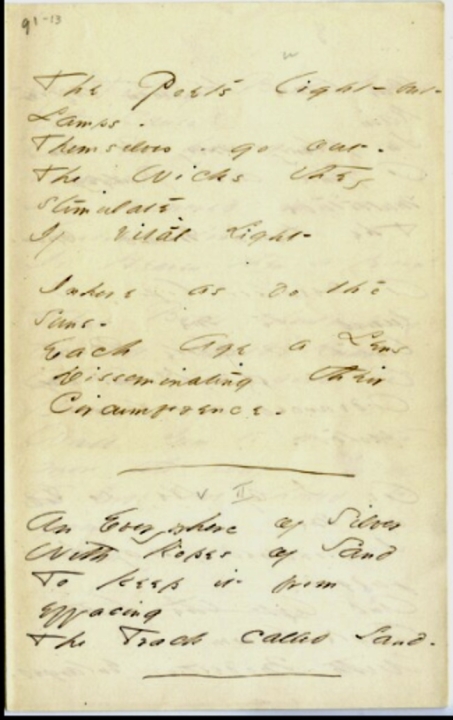 91-13
The Poets light but
Lamps -
Themselves - go out -
The Wicks they
stimulate
If vital Light
Inhere as do the
Suns -
Each Age a Lens
Disseminating their
Circumference -
II
An Everywhere of Silver
With Ropes of Sand
To keep it from
effacing
The Track called Land -